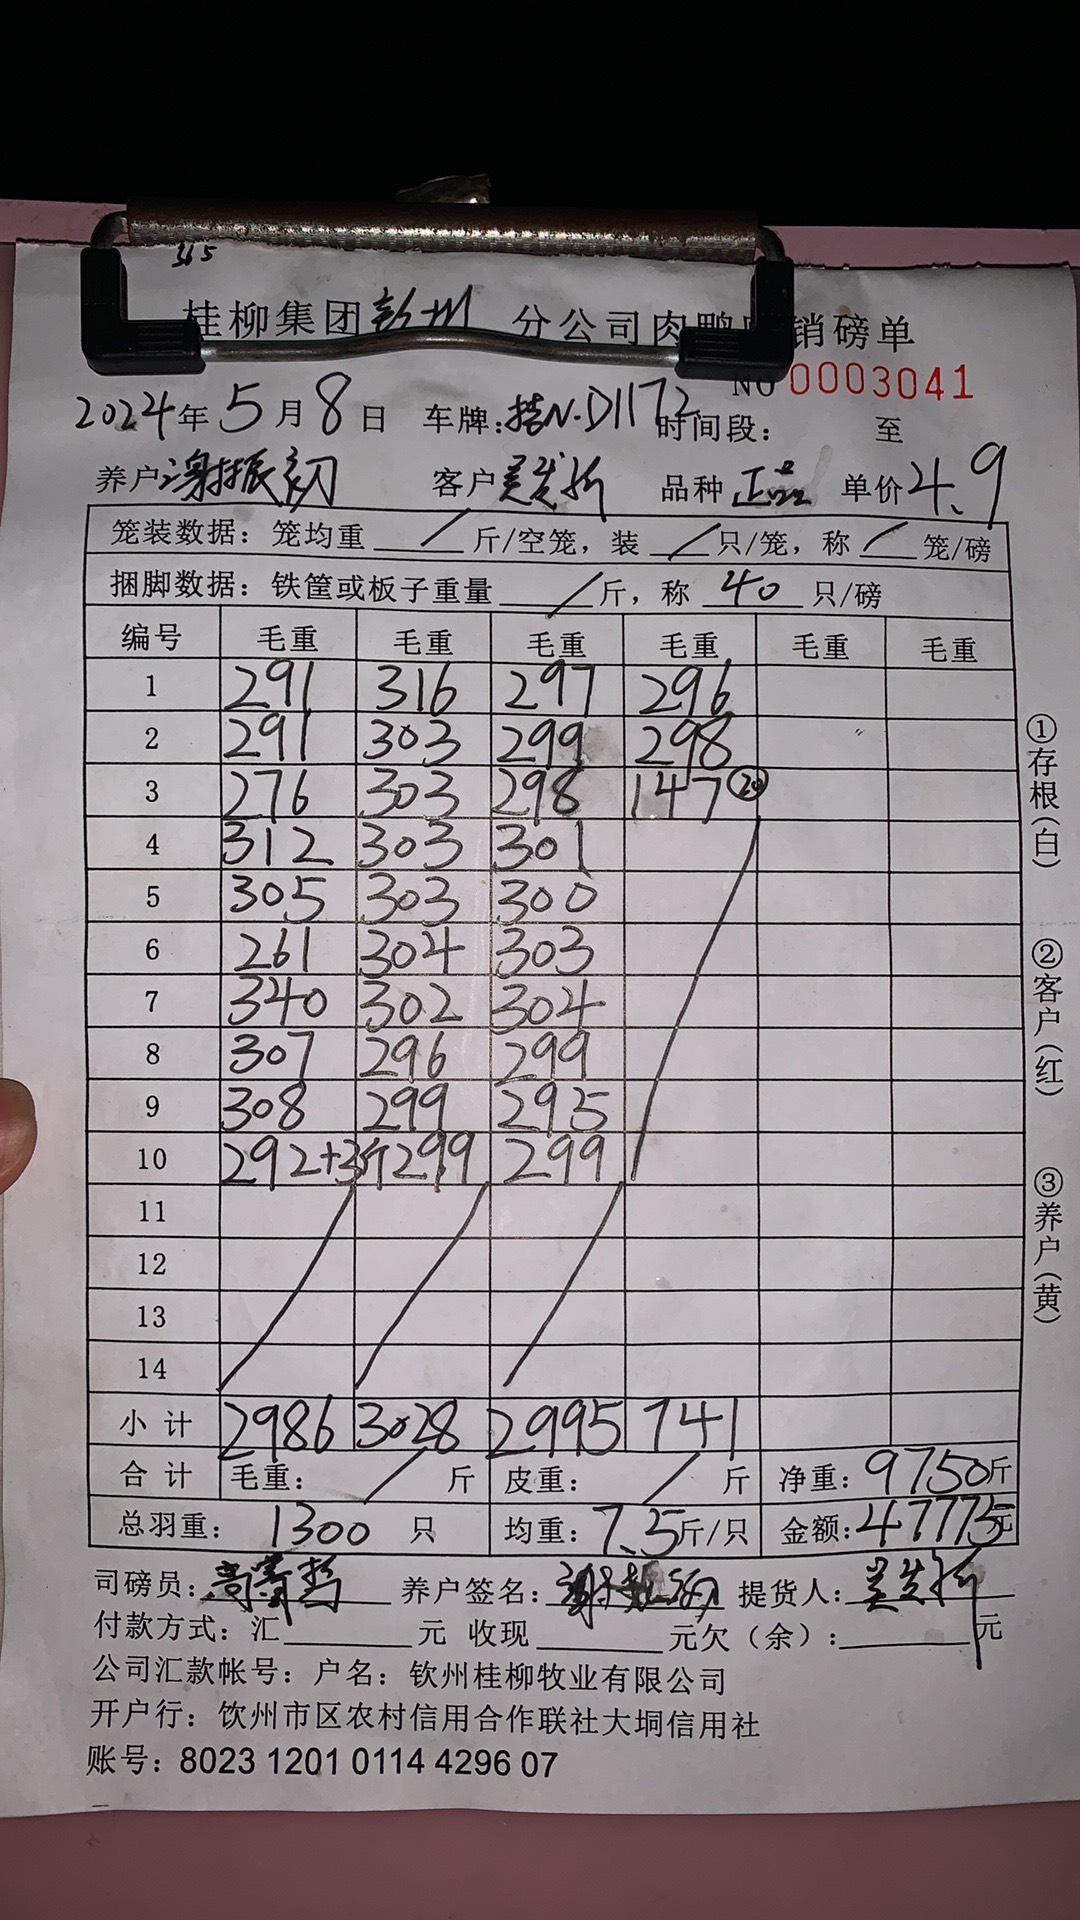 365
桂柳集团 钦州 分公司肉鸭 销磅单
NO 0003041
2024年5月8日 车牌:桂N·D1172 时间段: 至
养户 谢振 客户 吴发 品种 正品 单价4.9
笼装数据:笼均重 / 斤/空笼,装 / 只/笼,称 / 笼/磅
捆脚数据:铁筐或板子重量 / 斤,称 40 只/磅
编号 毛重 毛重 毛重 毛重 毛重 毛重
1 291 316 297 296
2 291 303 299 298
3 276 303 298 147 ⑳
4 312 303 301
5 305 303 300
6 261 304 303
7 340 302 304
8 307 296 299
9 308 299 295
10 292+3斤 299 299
11
12
13
14
小计 2986 3028 2995 741
合计 毛重: / 斤 皮重: / 斤 净重:9750斤
总羽重: 1300 只 均重:7.5斤/只 金额:47775元
司磅员: 养户签名: 提货人:吴发
付款方式:汇 元 收现 元欠(余): 元
公司汇款帐号:户名:钦州桂柳牧业有限公司
开户行:饮州市区农村信用合作联社大垌信用社
账号:8023 1201 0114 4296 07
①存根(白)
②客户(红)
③养户(黄)